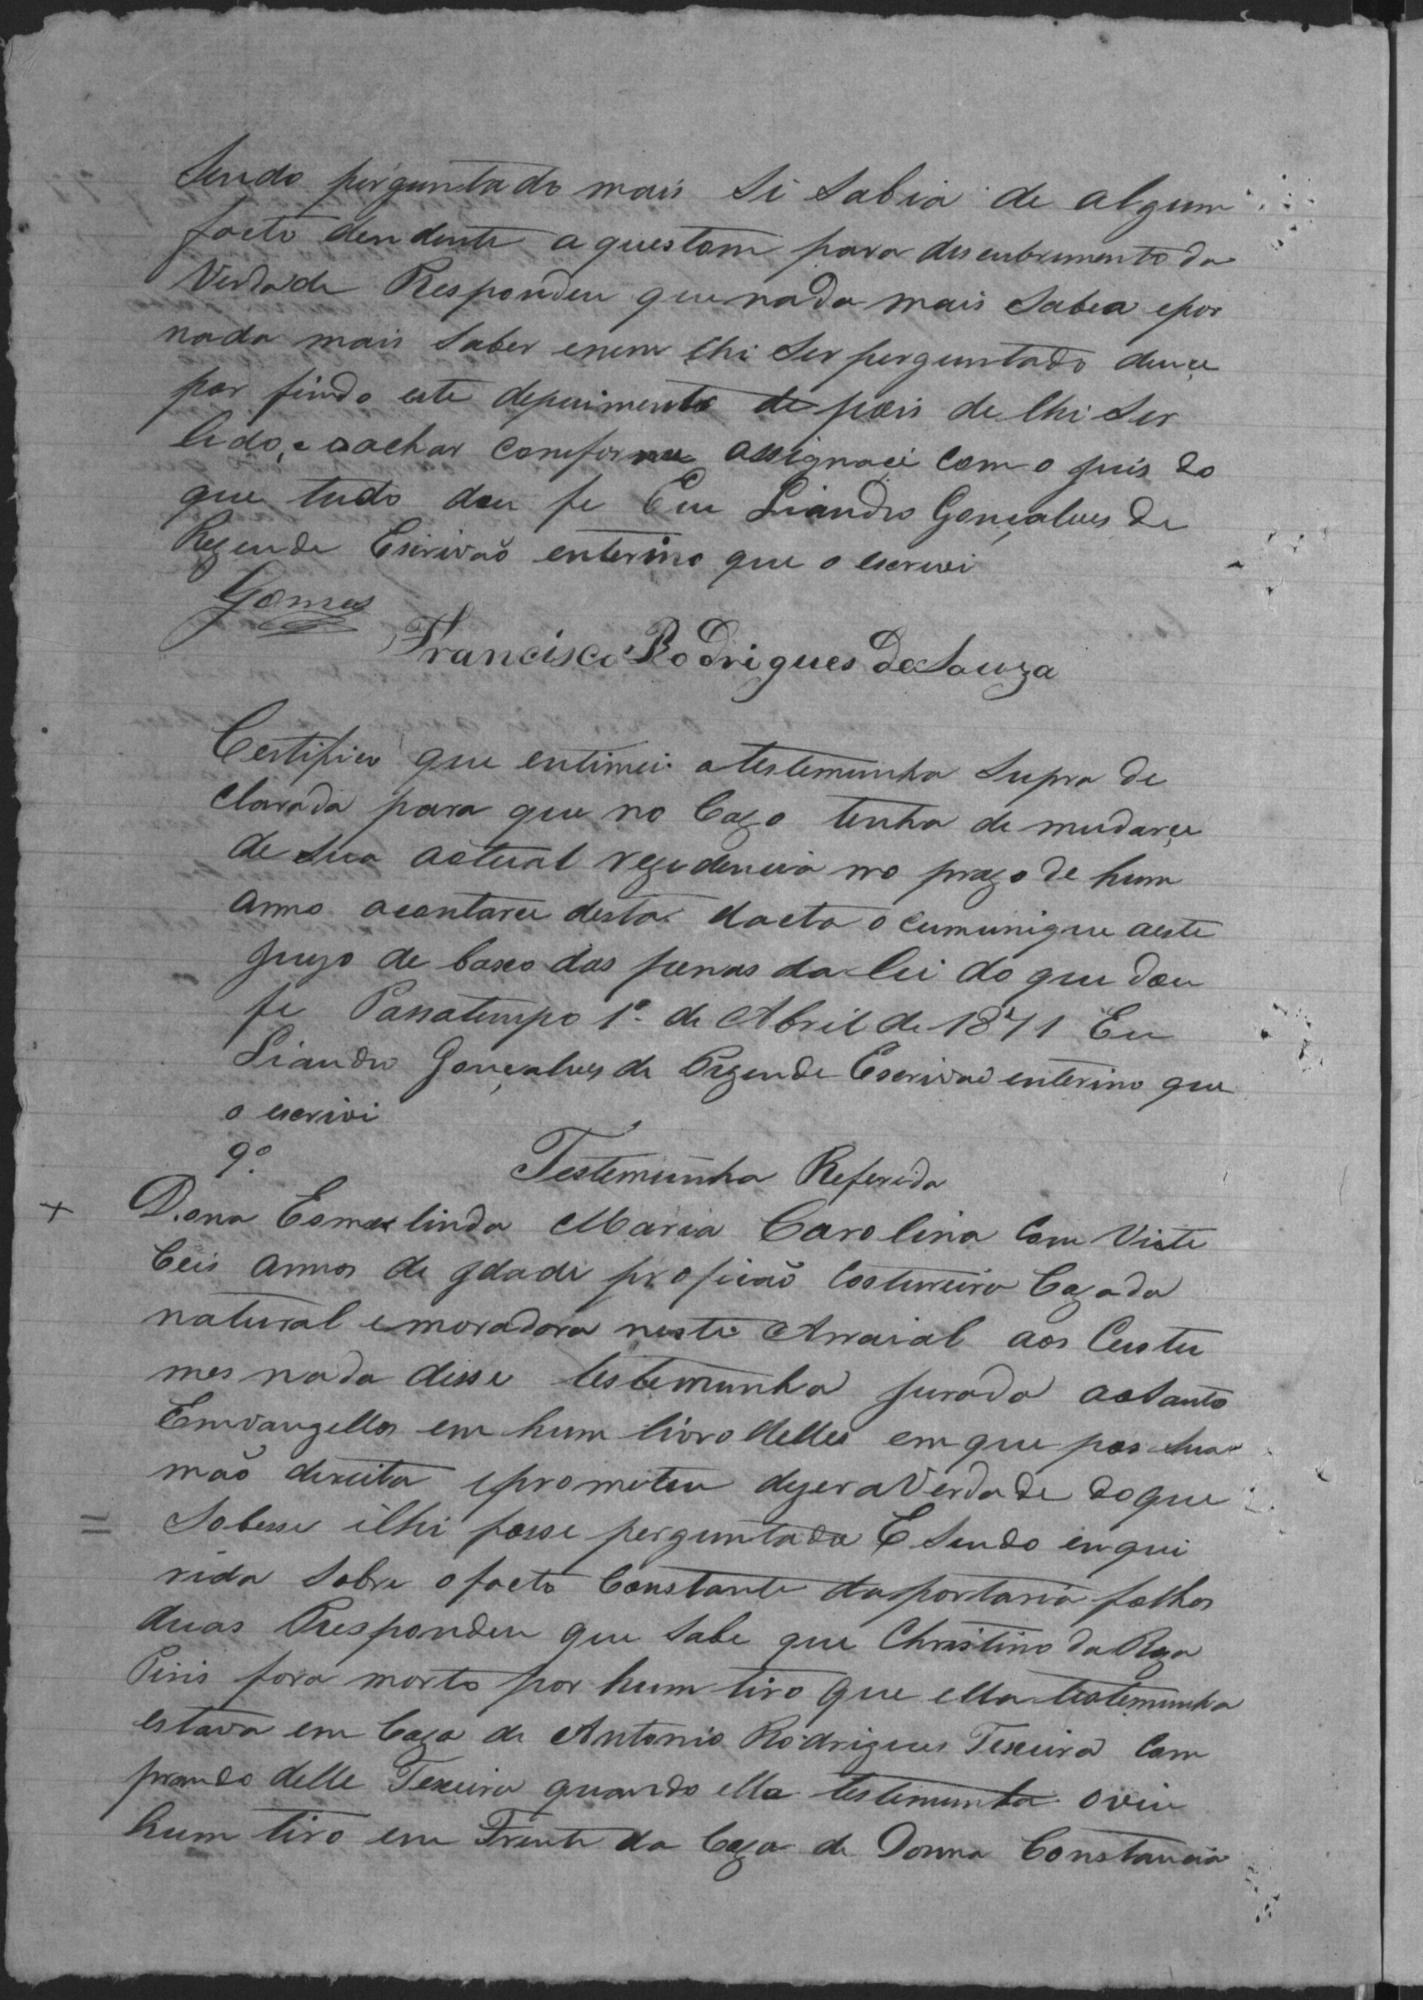 Sendo perguntado mais Si Sabia de algum
facto dendente a questam para descubrimento da
Verdade Respondeu que nada mais Sabia epor
nada mais Saber enem lhi Ser perguntado deuce
por findo este depuimento de pois de lhi Ser
lido, e aachar comforme assignaci com o juis do
que tudo dou fe Eu Liandro Gonçalves de
Rezende Escrivaõ enterino que o escrevi
Gomes
Francisco Rodrigues De Souza
Certifico que entimei a testemunha Supra de
clarada para que no Cazo tenha de mudarçe
de Sua actual rezidencia no prazo de hum
anno acontarce desta dacta o cumunique aeste
Juizo de baxo das penas da Lei do que dou
fe Passatempo 1º de Abril de 1871 Eu
Liandro Gonçalves de Rezende Escrivaõ enterino que
o escrivi
9º
Testemunha Referida
+ Dona Esmerlinda Maria Carolina Com Vinte
Ceis annos de Idade proficaõ Costureira Cazada
natural e moradora neste Arraial aos Custu
mes nada disse testemunha jurada aoSanto
Emvangellos em hum livro delles em que pos Sua
maõ direita epromiteu dizera Verdade doque
= Sobesse ilhi fosse perguntada E Sendo enqui
rida Sobre ofacto Constante daportaria folhas
duas Respondeu que Sabe que Christino da Roza
Piris fora morto por hum tiro que ella testemunha
estava em Caza de Antonio Rodrigues Texeira Com
prando delle Texeira quando ella testemunha oviu
hum tiro em Frente da Caza de Donna Constancia